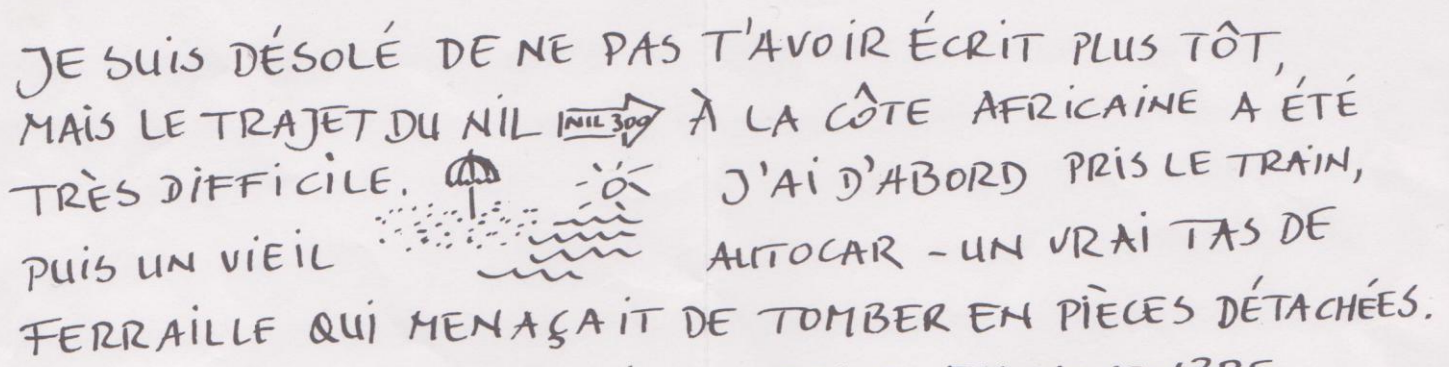 JE SUIS DÉSOLÉ DE NE PAS T'AVOIR ÉCRIT PLUS TÔT,
MAIS LE TRAJET DU NIL NIL 300 À LA CÔTE AFRICAINE A ÉTÉ
TRÈS DIFFICILE. J'AI D'ABORD PRIS LE TRAIN,
PUIS UN VIEIL AUTOCAR - UN VRAI TAS DE
FERRAILLE QUI MENAÇAIT DE TOMBER EN PIÈCES DÉTACHÉES.